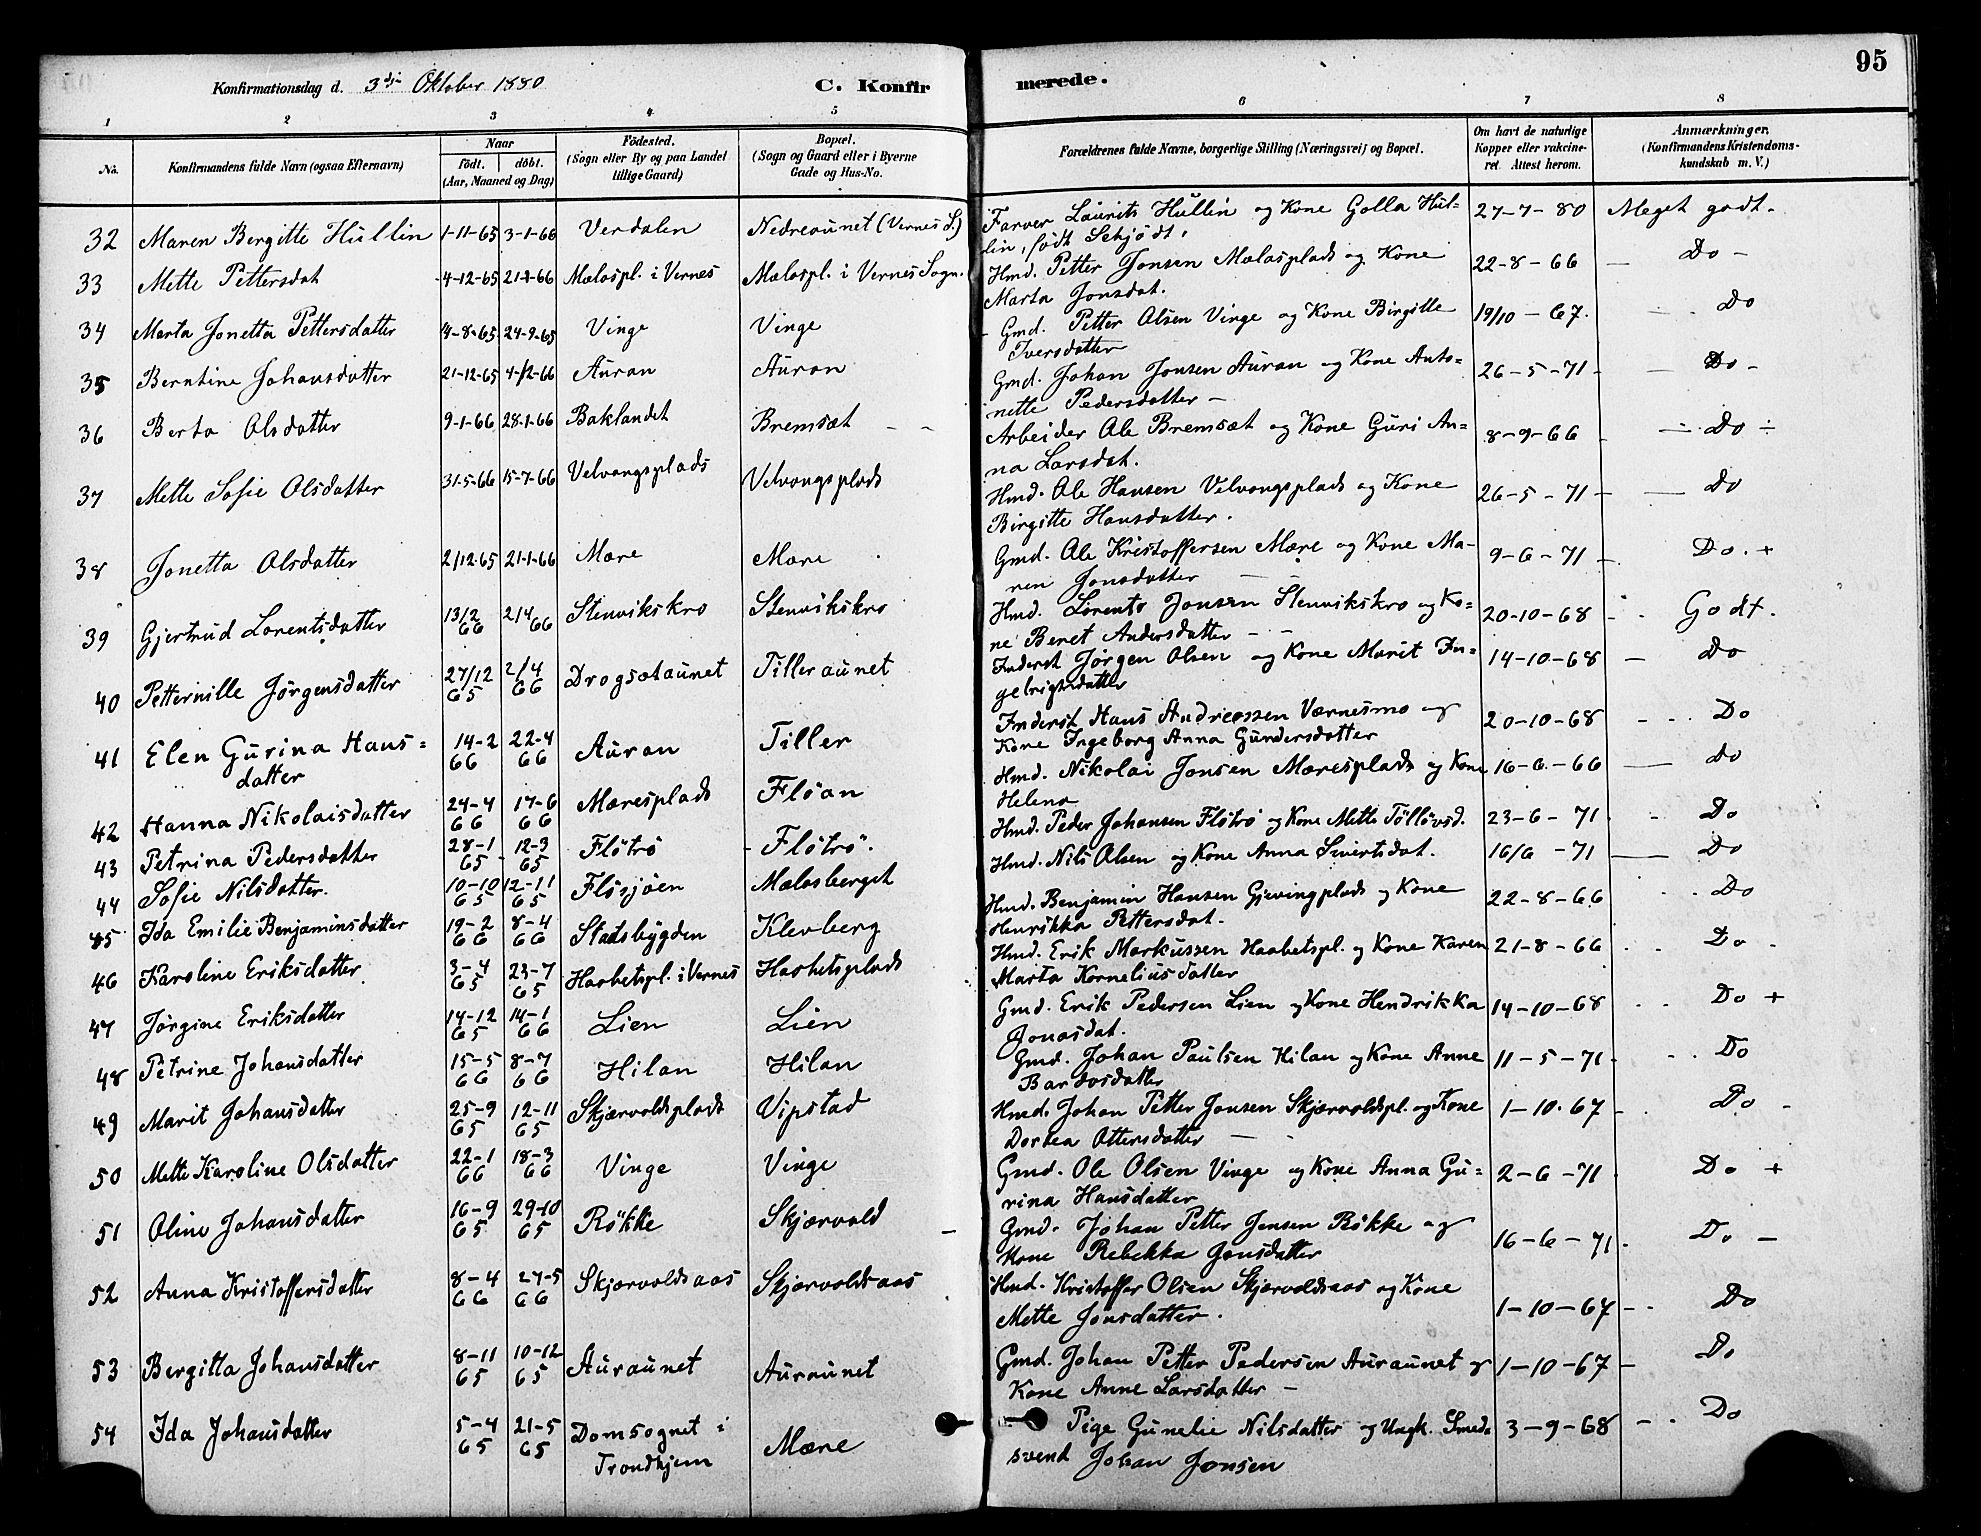 Konfirmationsdag d. 3die Oktober 1880
C. Konfir merede.
95
1 2 3 4 5 6 7 8
No. Konfirmandens fulde Navn (ogsaa Efternavn) Naar født. døbt. (Aar, Maaned og Dag) Fødested. (Sogn eller By og paa Landet tillige Gaard) Bopæl. (Sogn og Gaard eller i Byerne Gade og Hus-No. Forældrenes fulde Navne, borgerlige Stilling (Næringsvei) og Bopæl. Om havt de naturlige Kopper eller vakcineret. Attest herom. Anmærkninger, (Konfirmandens Kristendomskundskab m. V.)
32 Maren Bergitte Hullin 1-11-65 3-1-66 Verdalen Nedreaunet (Vernes S.) Farver Laurits Hullin og Kone Golla Hul-
lin, født Schjödt. 27-7-80 Meget godt.
33 Mette Pettersdat 4-12-65 21-1-66 Mælaspl. i Vernes Mælaspl. i Vernes Sogn. Hmd. Petter Jonsen Mælasplads og Kone
Marta Jonsdat. 22-8-66 — Do -
34 Marta Jonetta Pettersdatter 4-8-65 24-9-65 Vinge Vinge Gmd. Petter Olsen Vinge og Kone Birgitte
Iversdatter 19/10-67. Do
35 Berntine Johansdatter 21-12-65 4-12-66 Auran Auran Gmd. Johan Jonsen Auran og Kone Anto=
nette Pedersdatter - 26-5-71 - Do -
36 Berta Olsdatter 9-1-66 28-1-66 Baklandet Bremsæt Arbeider Ole Bremsæt og Kone Guri An=
na Larsdat. 8-9-66 Do
37 Mette Sofie Olsdatter 31-5-66 15-7-66 Velvangsplads Velvangsplads Hmd. Ole Hansen Velvangsplads og Kone
Birgitte Hansdatter. 26-5-71 — Do
38 Jonetta Olsdatter 2/12-65 21-1-66 Mære Mære Gmd. Ole Kristoffersen Mære og Kone Ma-
ren Jonsdatter 9-6-71 - Do. +
39 Gjertrud Lorentsdatter 13/2 66 2/4 66 Stenvikskro Stenvikskro Hmd. Lorents Jonsen Stenvikskro og Ko-
ne Beret Andersdatter 20-10-68 Godt.
40 Petternille Jørgensdatter 27/12 65 2/4 66 Drogsetaunet Tilleraunet Inderst Jørgen Olsen og Kone Marit In=
gebrigtsdatter 14-10-68 — Do
41 Elen Gurina Hans=
datter 14-2 66 22-4 66 Auran Tiller Inderst Hans Andreassen Værnesmo og
Kone Ingeborg Anna Gundersdatter 20-10-68 Do
42 Hanna Nikolaisdatter 24-4 66 17-6 66 Mæresplads Floan Hmd. Nikolai Jonsen Mæresplads og Kone
Helena 16-6-66 — Do
43 Petrina Pedersdatter 28-1 65 12-3 65 Flotrö Flotrö Hmd. Peder Johansen Flotrö og Kone Mette Tøllövsd. 23-6-71 Do
44 Sofie Nilsdatter. 10-10 65 12-11 65 Flösjøen Mælasberget Hmd. Nils Olsen og Kone Anna Sivertsdat. 16/6-71 — Do
85 Ida Emilie Benjaminsdatter 19-2 66 8-4 66 Stadsbygden Klevberg Hmd. Benjamin Hansen Gjevingplads og Kone
Henrikka Pettersdat. 22-8-66 Do
46 Karoline Eriksdatter 3-4 65 23-7 65 Haabetspl. i Vernes Haabetsplads Hmd. Erik Markussen Haabetspl. og Kone Karen
Marta Korneliusdatter 21-8-66 Do
47 Jørgine Eriksdatter 14-12 65 14-1 66 Lien Lien Gmd. Erik Pedersen Lien og Kone Hendrikka
Jonasdat. 14-10-68 Do +
48 Petrine Johansdatter 15-5 66 8-7 66 Hilan Hilan Gmd. Johan Paulsen Hilan og Kone Anne
Bardosdatter 11-5-71 Do
49 Marit Johansdatter 25-9 65 12-11 65 Skjærvoldsplads Vipstad Hmd. Johan Petter Jonsen Skjærvoldspl. og Kone
Dortea Ottersdatter 1-10-67 Do
50 Mette Karoline Olsdatter 22-1 66 18-3 66 Vinge Vinge Gmd. Ole Olsen Vinge og Kone Anna Gu=
rina Hansdatter 2-6-71 Do +
51 Oline Johansdatter 16-9 65 29-10 65 Røkke Skjærvold Gmd. Johan Petter Jensen Røkke og
Kone Rebekka Jonsdatter 16-6-71 Do —
52 Anna Kristoffersdatter 8-4 66 27-5 66 Skjærvoldsaas Skjærvoldsaas Hmd. Kristoffer Olsen Skjærvoldsaas og Kone
Mette Jonsdatter. 1-10-67 Do
53 Bergitta Johansdatter 8-11 65 10-12 65 Auraunet Auraunet Gmd. Johan Petter Pedersen Auraunet og
Kone Anne Larsdatter - 1-10-67 — Do
54 Ida Johansdatter 5-4 65 21-5 65 Domsognet i
Trondhjem Mære Pige Gunelie Nilsdatter og Ungk. Smede
svend Johan Jensen 3-9-68 Do